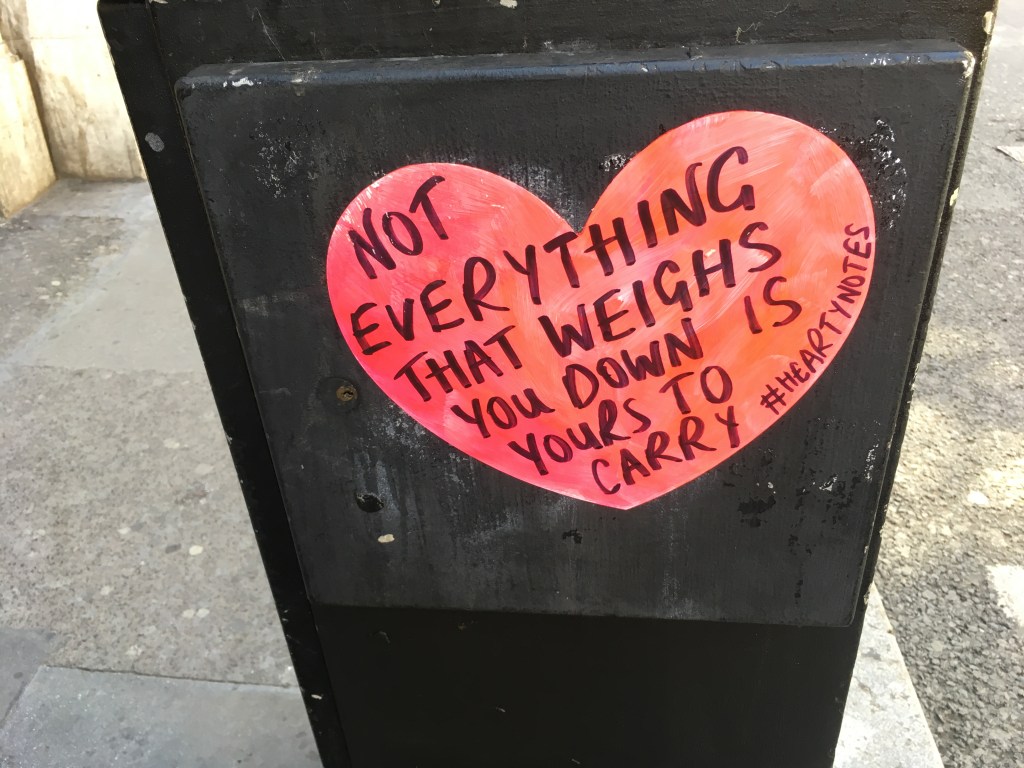 NOT
EVERYTHING
THAT WEIGHS
YOU DOWN IS
YOURS TO
CARRY
#HEARTYNOTES